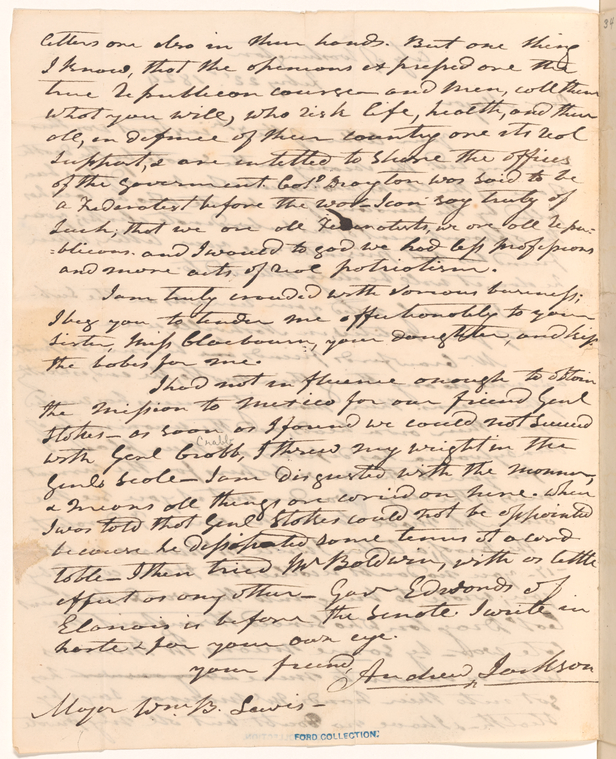 letters are also in their hands. But one thing
I know, that the opinions expressed are the
true republican course — and men, call them
what you will, who risk life, health, and their
all, in defence of their country are its real
support, & are intitled to share the offices
of the Government. Colo. Drayton was said to be
a Federalist before the war — I can say truly of
such, that we are all Federalists, we are all repu-
=blicans. and I would to god we had less professions
and more acts of real patriotism.
I am truly crowded with various business;
I beg you to tender me affectionately to your
sister, Miss Claebourn, your daughter, and kiss
the babes for me.
I had not influence enough to obtain
the mission to Mexico for our friend Genl
Stokes — as soon as I found we could not succeed
with Genl Crabb, I threw my weight in the
Genls scale — I am disgusted with the manner,
& means all things are carried on here. when
I was told that Genl Stokes could not be appointed
because he dissipated some times at a card
table — I then tried Mr Baldwin, with as little
effect as any other — Govr Edwards of
Elanois is before the Senate. I write in
haste & for your own eye.
your friend
Andrew Jackson
Major Wm. B. Lewis —
FORD COLLECTION.